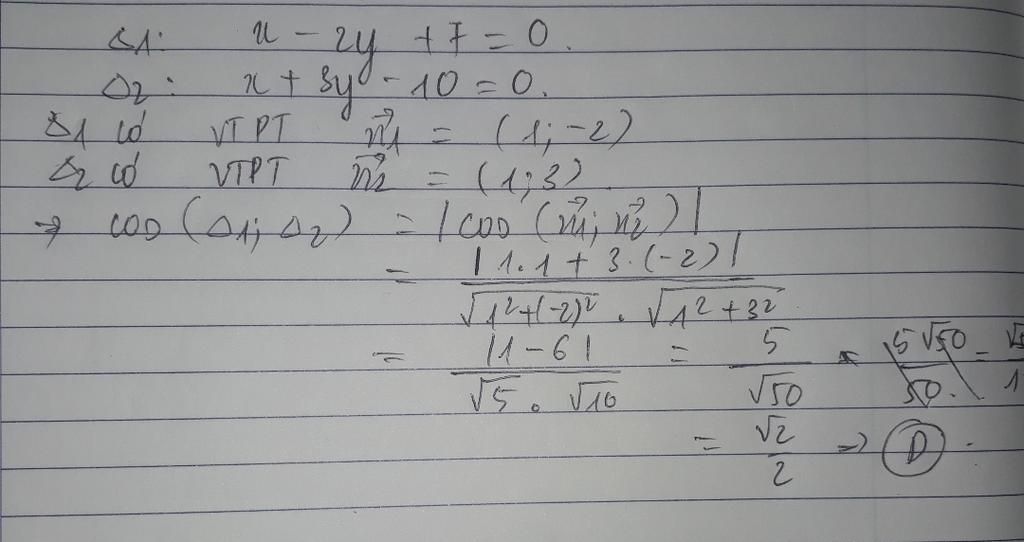 Δ1: x - 2y + 7 = 0.
Δ2: x + 3y - 10 = 0.
Δ1 có VTPT n⃗1 = (1; -2)
Δ2 có VTPT n⃗2 = (1; 3)
→ cos (Δ1; Δ2) = |cos (n⃗1; n⃗2)|
= |1.1 + 3.(-2)| / √(1²+(-2)²) . √(1²+3²)
= |1-6| / √5 . √10 = 5 / √50
= √2 / 2 ⇒ D.